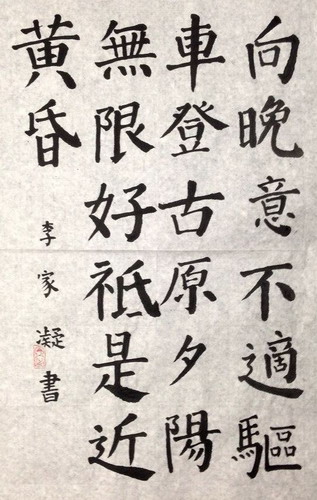 向晚意不適驅
車登古原夕陽
無限好祗是近
黃昏
李家凝書